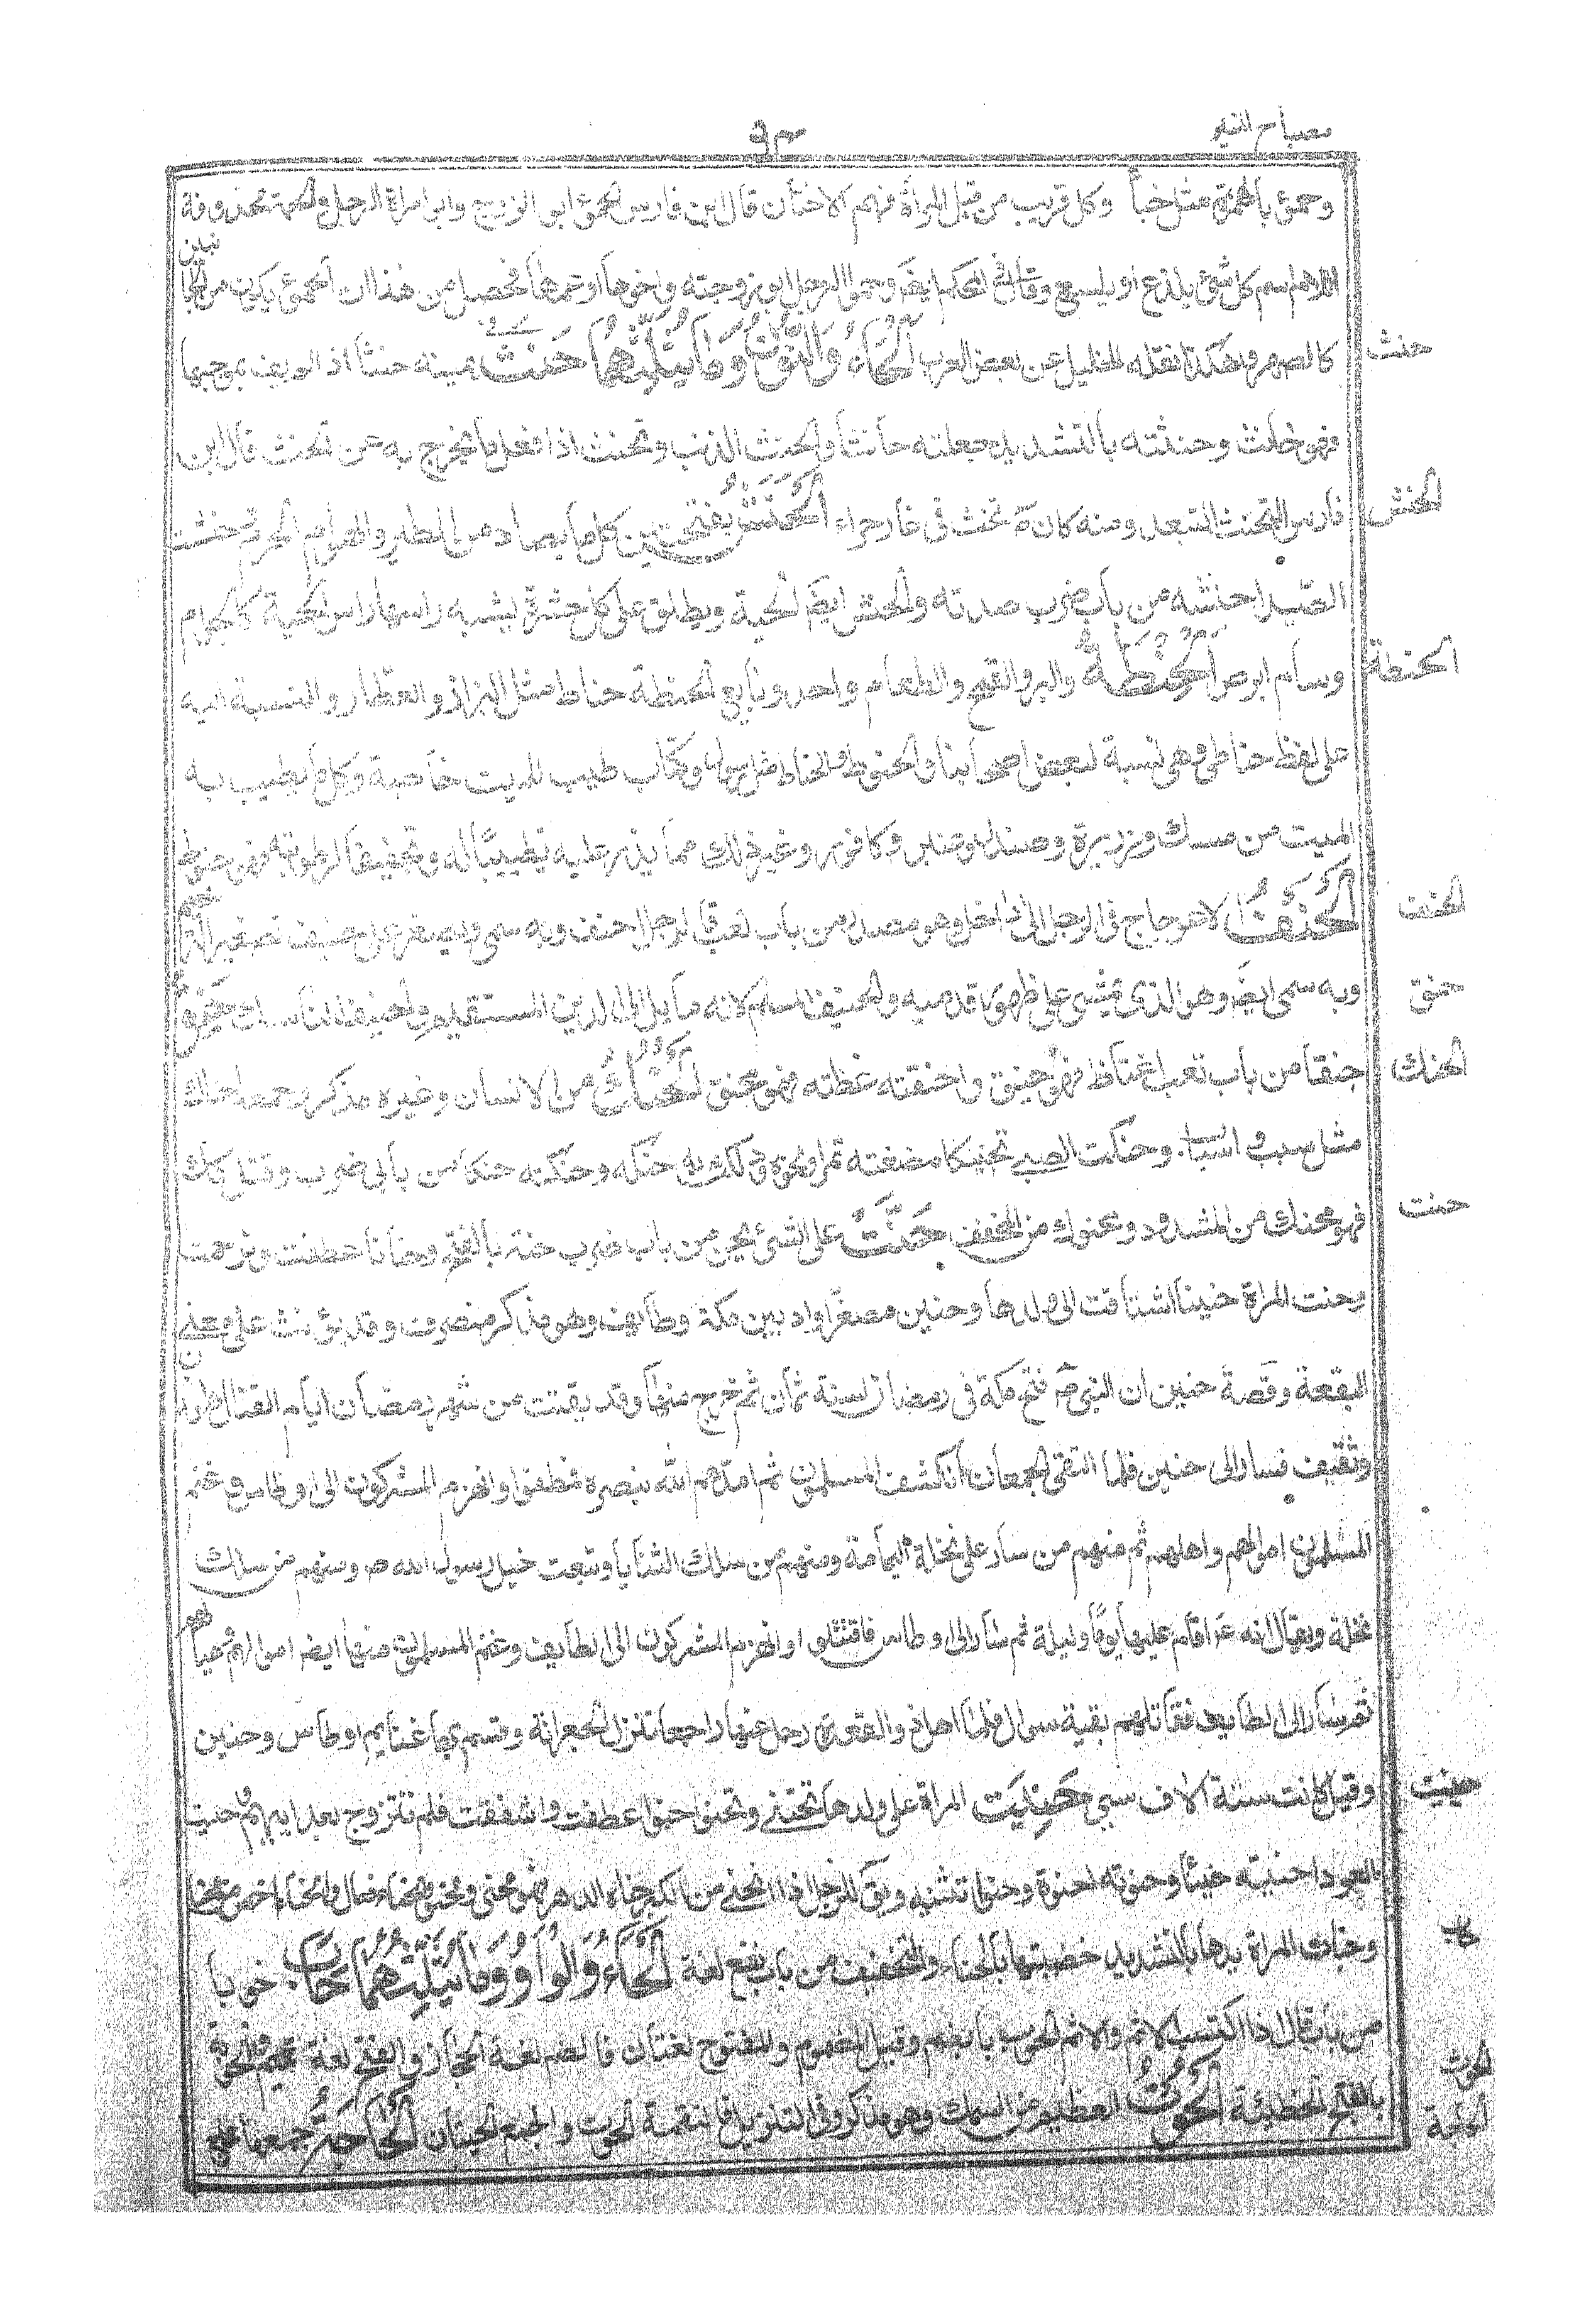 مصباح المنير
٩٣
وحمؤ بالهمزة مثل خبأ وكل قريب من قبل المرأة فهم الاختان قال ابن فارس الحمؤ ابو الزوج وابو امراة الرجل والحمة محذوفة
اللام سم كل شئ يلدغ او يلسع وقال في المحكم ايضَ وحمو الرجل ابو زوجته واخوها او عمها فحصل من هذا ان الحمؤ يكون من الجا
نبين
كالصهر وهكذا نقله الخليل عن بعض العرب الحَاءُ وَالنُّونُ وَمَا يُثَلِّثُهُمَا حَنَثَ في يمينه حنثا اذا لم يف بموجبها
حنث
فهو حانث وحنثته بالتشديد جعلته حانثا والحنث الذنب وتحنث اذا فعل ما يخرج به عن الحنث قال ابن
فارس التحنث التعبد ومنه كان صَ يتحنث في غار حراء الحَنَشُ بفتحتين كل ما يصاد من الطير والهوام الجمع حنشت
الحنش
الصيد احنشه من باب ضرب صدته والحنش ايضَ الحية ويطلق على كل حشرة يشبه راسها راس الحية كالحرام
وسام ابرص الحِنْطَةُ والبر والقمح والطعام واحد وبايع الحنطة حناط مثل البزاز والعطار والنسبة اليه
الحنطة
على لفظه حناطي وهي نسبة لبعض اصحابنا والحنوط والحناط مثل رسول وكتاب طيب للميت خاصة وكل ما يطيب به
الميت من مسك وذريرة وصندل وعنبر وكافور وغير ذلك مما يذر عليه تطييبًا له وتجفيفا لرطوبته فهو حنوط
الحَنَفُ الاعوجاج في الرجل الى داخل وهو مصدر من باب تعب فالرجل احنف وبه سمي ويصغر على حنيف تصغير الترخيم
الحنف
وبه سمى ايضَ وهو الذي يمشي على ظهور قدميه والحنيف المسلم لانه مايل الى الدين المستقيم والحنيف الناسك حَنِقَ
حنق
حنقا من باب تعب اغتاظ فهو حنق واحنقته غظته فهو محنق الحَنَكُ من الانسان وغيره مذكر وجمعه احناك
الحنك
مثل سبب و اسباب. وحنكت الصبي تحنيكا مضغت تمرا ونحوه ودلكت به حنكه وحنكته حنكا من بابي ضرب وقتل كذلك
فهو محنك من المشدد ومحنوك من المخفف حَنَّتْ على الشئ يحن من باب ضرب حنة بالفتح وحنانا عطفت وترحمت
حنت
وحنت المراة حنينا اشتاقت الى ولدها وحنين مصغرا واد بين مكة وطايف وهو مذكر منصرف وقد يؤنث على معنى
البقعة وقصة حنين ان النبي صَ فتح مكة في رمضان سنة ثمان ثم خرج منها وقد بقيت من شهر رمضان ايام لقتال هوازن
وثقيف فسار الى حنين فلما التقى الجمعان انكشف المسلمون ثم امدهم الله بنصره فعطفوا وانهزم المشركون الى اوطاس وغنم
المسلمون اموالهم واهلهم ثم منهم من سار على نخلة اليمامة ومنهم من سلك الثنايا وتبعت خيل رسول الله ص ومنهم من سلك
نخلة ويقال انه عَ اقام عليها يومًا وليلة ثم سار الى اوطاس فاقتتلو او انهزم المشركون الى الطايف وغنم المسلمون منها ايضَ اموالهم وعيالهم
ثم سار الى الطايف فقاتلهم بقية شوال فلما اهل ذو القعدة رحل عنها راجعا فنزل الجعرانة وقسم بها غنايم اوطاس وحنين
وقيل كانت ستة آلاف سبي حَنِيَت المراة على ولدها تحنى وتحنو حنوا عطفت واشفقت فلم تتزوج بعد ابيهم وحنيت
حنيت
العود احنيته حنيًا وحنوته احنوه وحنوا تثنيه ويقَ للرجل اذا انحنى من الكبر حناه الدهر فهو محنى ومحنو والحناء فعال والحناءة اخص من الحناء
وحنات المراة يدها بالتشديد خضبتها بالحناء والتخفيف من باب نفع لغة الحَاءُ وَالْوَاوُ وَمَا يُثَلِّثُهُمَا حَابَ حوبا
من باب قال اذا اكتسب الاثم والاثم الحوب بالضم وقيل المضموم والمفتوح لغتان فالضم لغة الحجاز والفتح لغة تميم والحوبة
بالفتح الخطيئة الحُوتُ العظيم من السمك وهو مذكر وفي التنزيل فالتقمه الحوت والجمع الحيتان الحَاجَةُ جمعها حاج
الحوت
الحاجة